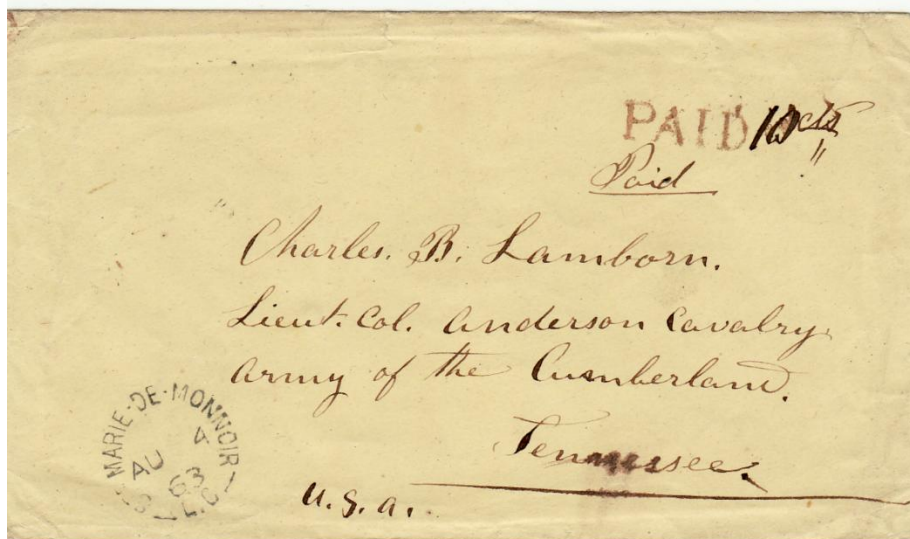 PAID 10 cts
Paid
Charles. B. Lamborn.
Lieut. Col. Anderson Cavalry
Army of the Cumberland.
Tennessee.
U.S.A.
S^TE MARIE-DE-MONNOIR L.C
AU
63